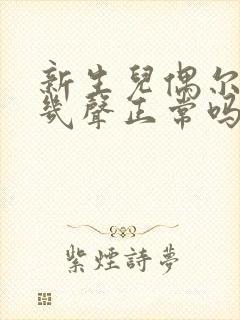 新生兒偶尔
幾聲正常吗
紫煙詩夢